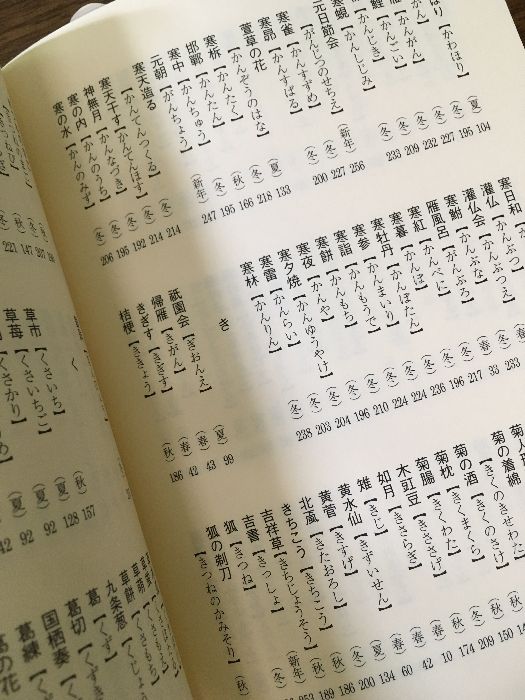 ほり【かわほり】（夏）104
【かんがん】（冬）227
【かんごい】（冬）232
【かんじき】（冬）209
寒蜆【かんしじみ】（冬）233
元日節会【がんじつのせちえ】（新年）256
寒雀【かんすずめ】（冬）227
寒昴【かんすばる】（冬）200
萱草の花【かんぞうのはな】（夏）133
寒柝【かんたく】（冬）218
邯鄲【かんたん】（秋）166
寒中【かんちゅう】（冬）195
元朝【がんちょう】（新年）247
寒天造る【かんてんつくる】（冬）214
寒天干す【かんてんほす】（冬）214
神無月【かんなづき】（冬）192
寒の内【かんのうち】（冬）195
寒の水【かんのみず】（冬）206
寒日和
灌仏
灌仏会【かんぶつえ】（春）
寒鮒【かんぶな】（冬）233
雁風呂【がんぶろ】（春）33
寒紅【かんべに】（冬）217
寒暮【かんぼ】（冬）196
寒牡丹【かんぼたん】（冬）236
寒参【かんまいり】（冬）224
寒詣【かんもうで】（冬）224
寒餅【かんもち】（冬）210
寒夜【かんや】（冬）196
寒夕焼【かんゆうやけ】（冬）204
寒雷【かんらい】（冬）203
寒林【かんりん】（冬）238
き
祇園会【ぎおんえ】（夏）99
帰雁【きがん】（春）43
きぎす【きぎす】（春）42
桔梗【ききょう】（秋）186
菊の着綿【きくのきせわた】
菊の酒【きくのさけ】（秋）
菊枕【きくまくら】（秋）150
菊腸【きくわた】（冬）209
木豇豆【きささげ】（秋）174
如月【きさらぎ】（春）10
雉【きじ】（春）42
黄水仙【きずいせん】（春）60
黄菅【きすげ】（夏）134
北颪【きたおろし】（冬）200
きちこう【きちこう】（秋）186
吉祥草【きちじょうそう】（秋）189
吉書【きっしょ】（新年）253
狐【きつね】（冬）
狐の剃刀【きつねのかみそり】（秋）
く
草市【くさいち】（秋）157
草苺【くさいちご】（夏）128
【くさかり】（夏）92
草餅
九条葱
葛
葛切
国栖奏
葛練
葛の花